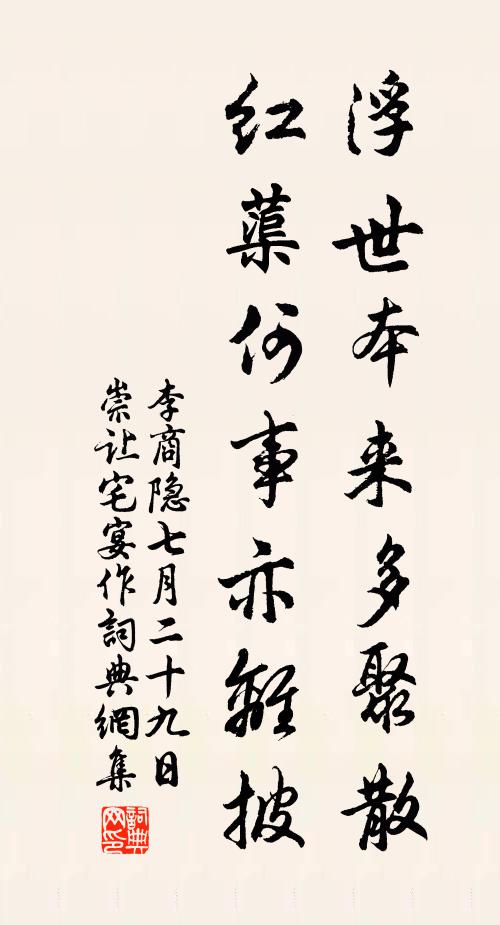 浮世本来多聚散
红蕖何事亦離披
李商隐七月二十九日
崇让宅宴作詞典網集
詞典網印